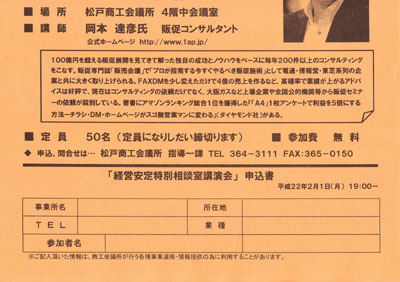 ■ 場 所 松戸商工会議所 4階中会議室
■ 講 師 岡本 達彦氏 販促コンサルタント
公式ホームページ http://www.1ap.jp/
100億円を超える販促展開を見てきて解った独自の成功とノウハウをベースに毎年200件以上のコンサルティング
をこなす。販促専門誌「販売会議」で「プロが指南する今すぐやるべき販促施術」として電通・博報堂・東芝系列の企
業と共に大きく取り上げられる。FAXDMを少し変えただけで4億の売上を作るなど、高確率で業績が上がるアドバ
イスは好評で、現在はコンサルティングの依頼だけでなく、大阪ガスなど上場企業や全国公的機関等から販促セミナ
ーの依頼が殺到している。著書にアマゾンランキング総合1位を獲得した『「A4」1枚アンケートで利益を5倍にする
方法―チラシ・DM・ホームページがスゴ腕営業マンに変わる』(ダイヤモンド社)がある。
■ 定 員 50名(定員になりしだい締切ります) ■ 参加費 無料
◆ 申込、問合せは… 松戸商工会議所 指導一課 TEL 364-3111 FAX:365-0150
「経営安定特別相談室講演会」申込書
平成22年2月1日(月) 19:00～
事業所名 所在地
TEL 業 種
参加者名
※ご記入頂いた情報は、商工会議所が行う各種事業連絡・情報提供の為に利用することがあります。